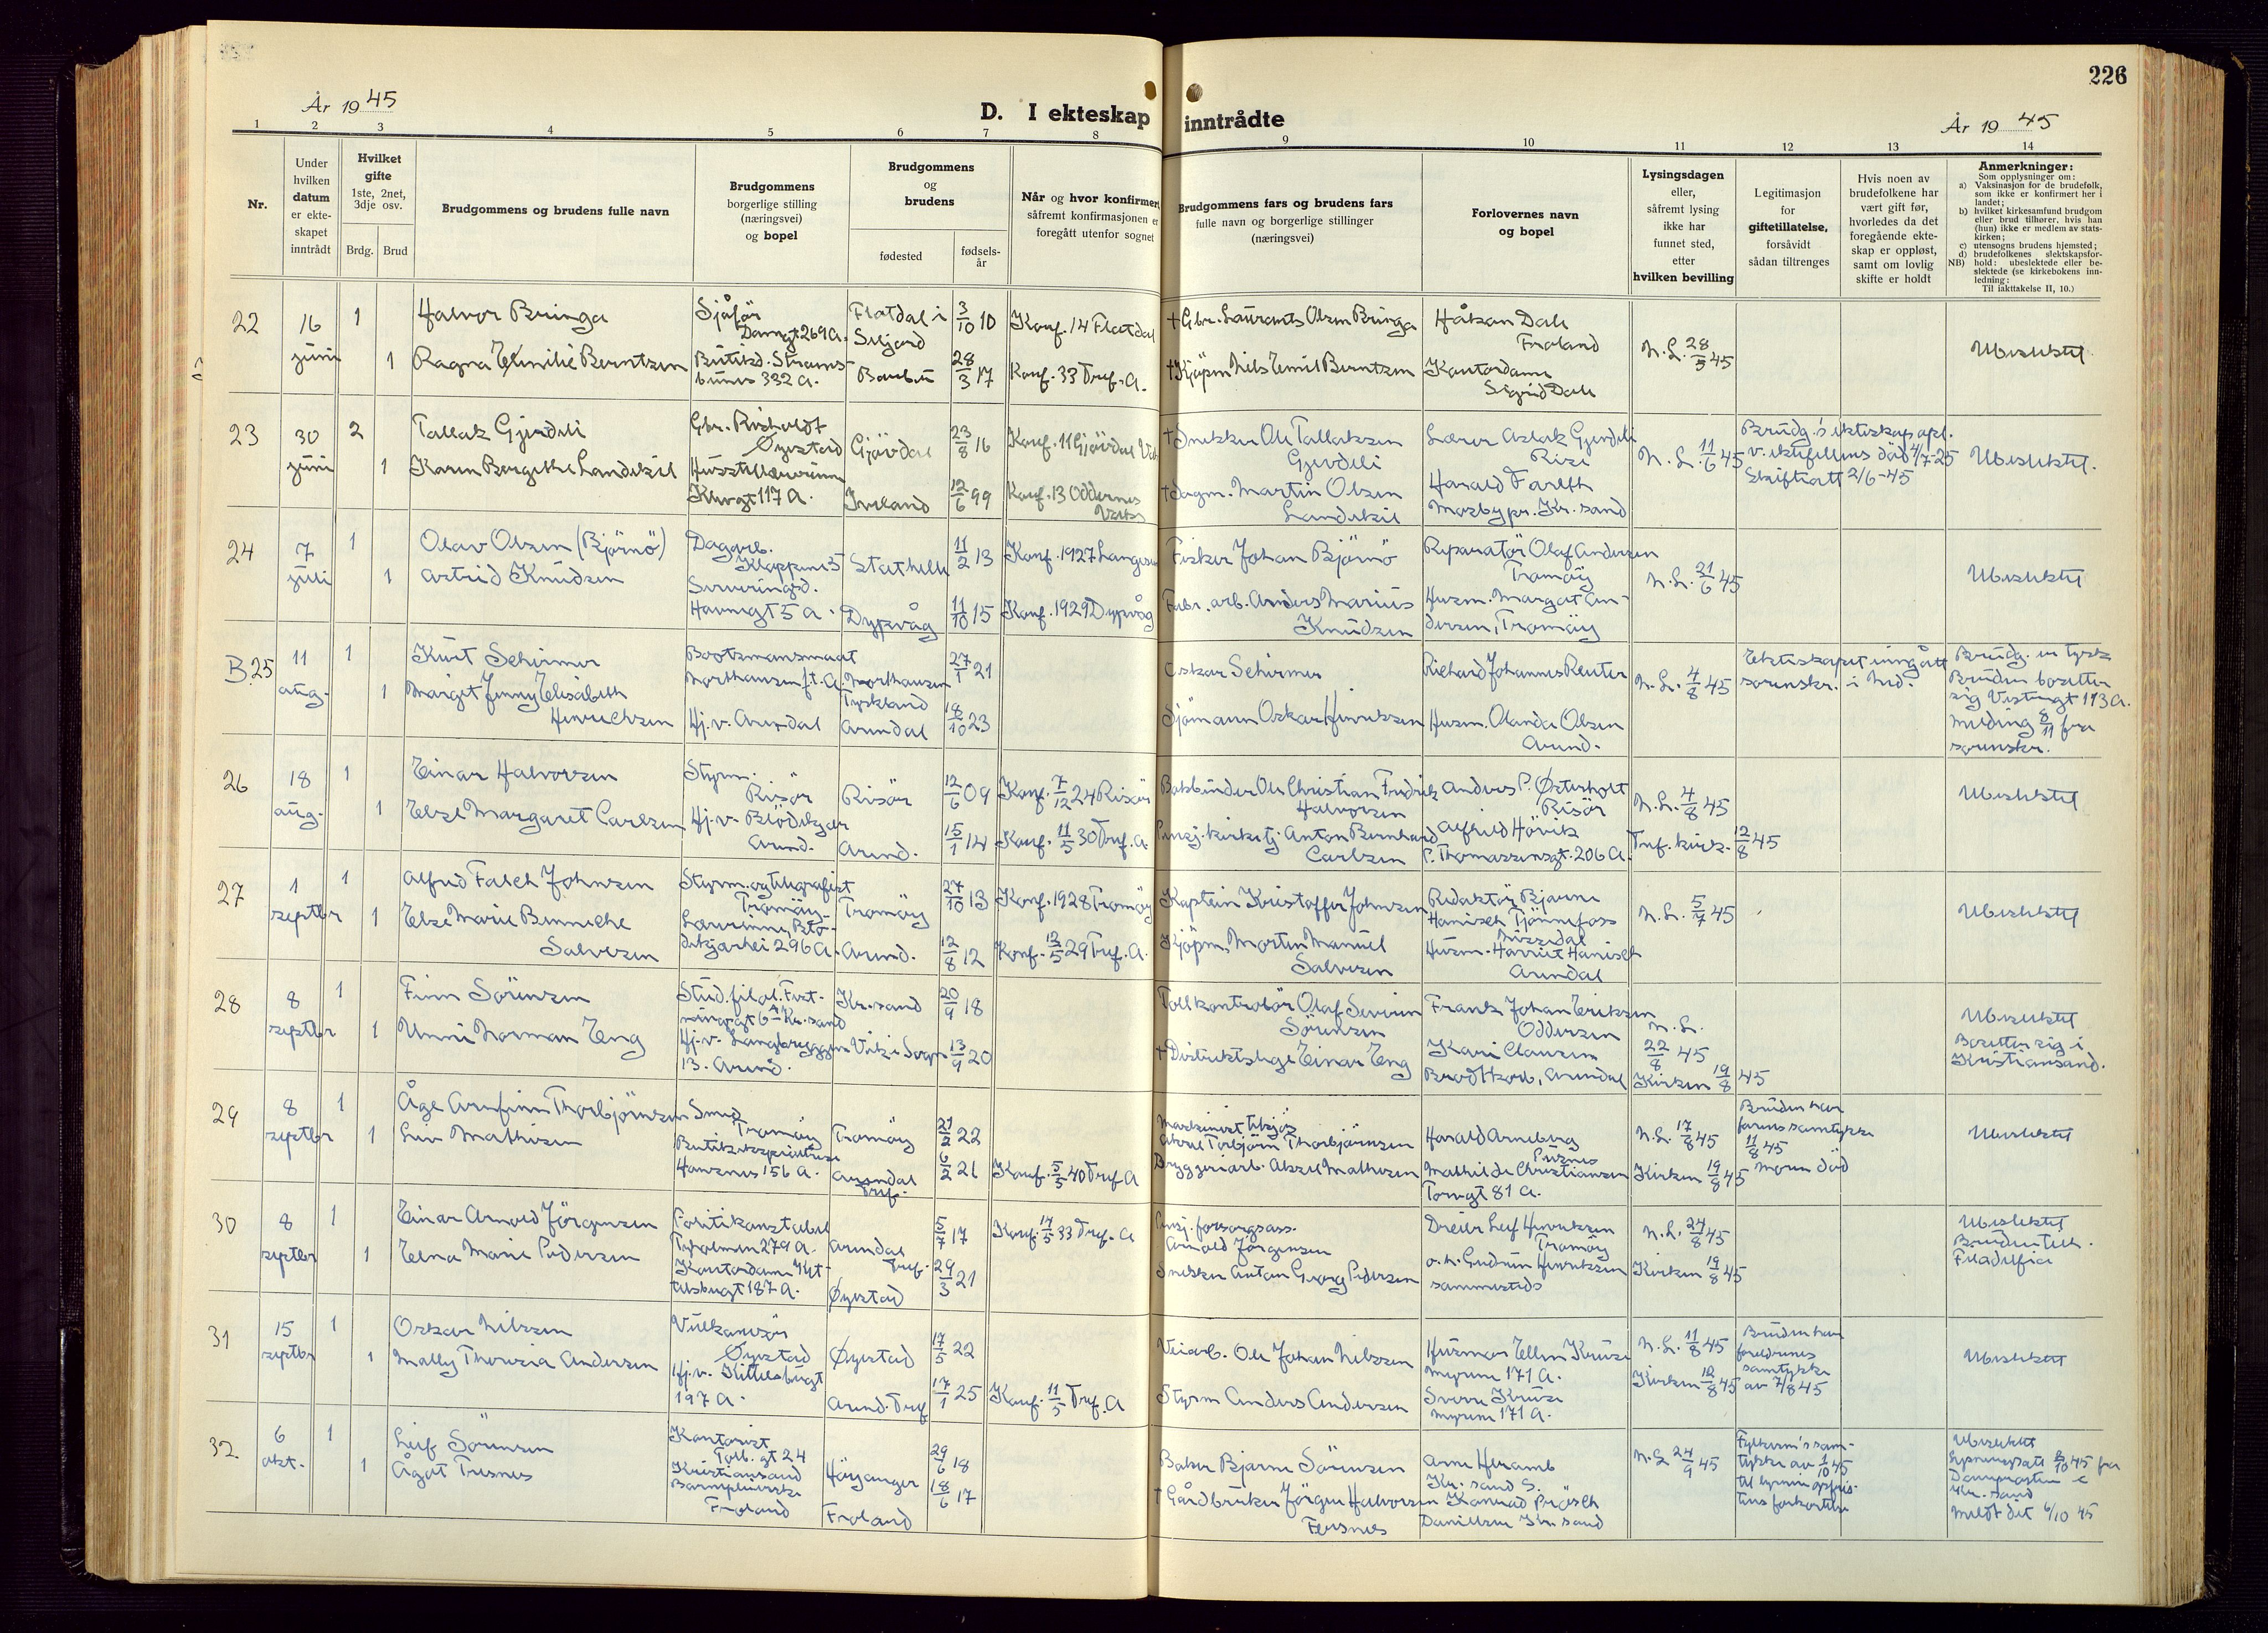 226
År 1945
D. I ekteskap inntrådte
År 1945
1 2 3 4 5 6 7 8 9 10 11 12 13 14
Nr.
Under
hvilken
datum
er ekte-
skapet
inntrådt
Hvilket
gifte
1ste, 2net,
3dje osv.
Brdg. Brud
Brudgommens og brudens fulle navn
Brudgommens
borgerlige stilling
(næringsvei)
og bopel
Brudgommens
og
brudens
fødested
fødsels-
år
Når og hvor konfirmert
såfremt konfirmasjonen er
foregått utenfor sognet
Brudgommens fars og brudens fars
fulle navn og borgerlige stillinger
(næringsvei)
Forlovernes navn
og bopel
Lysingsdagen
eller,
såfremt lysing
ikke har
funnet sted,
etter
hvilken bevilling
Legitimasjon
for
giftetillatelse,
forsåvidt
sådan tiltrenges
Hvis noen av
brudefolkene har
vært gift før,
hvorledes da det
foregående ekte-
skap er oppløst,
samt om lovlig
skifte er holdt
Anmerkninger:
Som opplysninger om:
a) Vaksinasjon for de brudefolk,
som ikke er konfirmert her i
landet;
b) hvilket kirkesamfund brudgom
eller brud tilhører, hvis han
(hun) ikke er medlem av stats-
kirken;
c) utensogns brudens hjemsted;
d) brudefolkenes slektskapsfor-
NB) hold: ubeslektede eller be-
slektede (se kirkebokens inn-
ledning;
Til iakttakelse II, 10.)
22
16
juni
1
1
Halvor Bringa
Ragna Emilie Berntzen
Sjåfør
Damgt 269 A.
Butikd. Stroms-
bunes 332 A.
Flatdal i
Seljord
Barbu
3/10 10
28/3 17
Konf. 14 Flatdal
Konf. 33 Tref. A.
+ Gbr. Laurants Olsen Bringa
+ Kjöpm Nils Emil Berntzen
Håkon Dale
Froland
Kontordame
Sigrid Dale
N. L. 28/5 45
Ubeslektet
23
30
juni
2
1
Tallak Gjerdeli
Karen Bergithe Landekil
Gbr. Risholdt
Øyestad
Gjövdal
Iveland
23/8 16
12/6 99
Konf. 11 Gjövdal
Konf. 13 Oddernes
+ Snekker Ole Tallaksen
Gjerdeli
+ Dagm. Martin Olsen
Landekil
Lærer Aslak Gjerdeli
Rise
Harald Fareth
Mosby pr. Kr. sand
N. L. 11/6 45
Brudg.s ekteskap opl.
v. ektefellens död 4/7-25
Skifteatt 2/6-45
Ubeslektet.
24
7
juli
1
1
Olav Olsen (Björnö)
Astrid Knudsen
Dagarb.
Kloppene 5
Serveringsd.
Havnegt 5 A.
Stathelle
Dypvåg
11/2 13
11/10 15
Konf. 1927 Langesun
Konf. 1929 Dypvåg
Fisker Johan Björnö
Fabr. arb. Anders Marius
Knudsen
Reparatör Olaf Andersen
Tromöy
Husm. Margot An-
dersen, Tromöy
N. L. 21/6 45
Ubeslektet
B. 25
11
aug.
1
1
Kurt Schirmer
Margit Jenny Elisabeth
Henrichsen
Bootsmansmaat
Northausen f.t. A.
Hj. v. Arendal
Northausen
Tyskland
Arendal
27/1 21
18/10 23
Oskar Schirmer
Sjömann Oskar Henriksen
Richard Johannes Reuter
Husm. Olanda Olsen
Arend.
N. L. 4/8 45
Ekteskapet inngått
sorenskr. i Ned.
Brudg. er tysk
Bruden bosetter
sig Vestregt 113 A.
Melding 8/11 fra
sorenskr.
26
18
aug.
1
1
Einar Halvorsen
Else Margaret Carlsen
Styrm.
Risör
Hj. v. Blödekjær
Arend.
Risör
Arend.
12/6 09
15/1 14
Konf. 7/12 24 Risör
Konf. 11/5 30 Tref. A.
Bokbinder Ole Christian Fredrik
Halvorsen
Pensj. kirketj. Anton Bernhard
Carlsen
Anders P. Østerholt
Risör
Alfhild Hövik
P. Thomassensgt. 206 A.
N. L. 4/8 45
Tref. kirk. 12/8 45
Ubeslektet
27
1
septbr
1
1
Alfred Falch Johnsen
Else Marie Benneche
Salvesen
Styrm. og telegrafist
Tromöy
Lærerinne, Blö-
dekjærhei 296 A.
Tromöy
Arend.
27/10 13
12/8 12
Konf. 1928 Tromöy
Konf. 12/5 29 Tref. A.
Kaptein Kristoffer Johnsen
Kjöpm. Morten Manuel
Salvesen
Redaktör Bjarne
Hanisch Tjönnefoss
Nissedal
Husm. Harriet Hanisch
Arendal
N. L. 5/7 45
Ubeslektet
28
8
septbr
1
1
Finn Sörensen
Unni Norman Eng
Stud. filol. Fest-
ningsgt 6 A Kr. sand
Hj. v. Langbryggen
13. Arend.
Kr. sand
Vik i Sogn
20/9 18
13/9 20
Tollkontrolör Olaf Severin
Sörensen
+ Distriktslege Einar Eng
Frank Johan Eriksen
Oddersen
Kari Clausen
Brodtkorb, Arendal
N. L.
22/8 45
Kirken 19/8 45
Ubeslektet
Bosetter sig i
Kristiansand.
29
8
septbr
1
1
Åge Arnfinn Thorbjörnsen
Liv Mathisen
Smed
Tromöy
Butikkekspeditrise
Havenes 156 A.
Tromöy
Arendal
Tref.
21/2 22
6/2 21
Konf. 5/5 40 Tref A
Maskinist
Aksel Torbjörn Thorbjörnsen
Bryggeriarb. Aksel Mathisen
Harald Arneberg
Pusnes
Mathilde Christiansen
Torvgt 81 A.
N. L. 17/8 45
Kirken 19/8 45
Bruden har
farens samtykke
11/8 45
Moren död
Ubeslektet
30
8
septbr
1
1
Einar Arnold Jörgensen
Elna Marie Pedersen
Politikonstabel
Tyholmen 279 A.
Kontordame Kyt-
telsbugt 187 A.
Arendal
Tref.
Øyestad
5/7 17
29/3 21
Konf. 14/5 33 Tref. A
Pensj. forsorgsass.
Arnold Jörgensen
Snekker Anton Georg Pedersen
Dreier Leif Henriksen
Tromöy
o. h. Gudrun Henriksen
sammesteds
N. L. 24/8 45
Kirken 19/8 45
Ubeslektet
Bruden tilh.
Filadelfia
31
15
septbr
1
1
Oskar Nilssen
Mally Theresia Andersen
Vulkanisör
Øyestad
Hj. v. Kittelsbugt
197 A.
Øyestad
Arend. Tref
17/5 22
17/1 25
Konf. 11/5 Tref. A
Veiarb. Ole Johan Nilssen
Styrm Anders Andersen
Husmor Ellen Kruse
Myrene 171 A.
Sverre Kruse
Myrene 171 A.
N. L. 11/8 45
Kirken 12/8 45
Bruden har
foreldrenes
samtykke
av 7/8 45
Ubeslektet
32
6
okt.
1
1
Leif Sörensen
Ågot Tresnes
Kontorist
Tolb. gt 24
Kristiansand
Barnepleierske
Froland
Höyanger
Froland
29/6 18
18/6 17
Baker Bjarne Sörensen
+ Gårdbruker Jörgen Halvorsen
Arne Heramb
Kr. sand S.
Konrad Prösch
Danielsen Kr. sand
N. L 24/9 45
Fylkesm's sam-
tykke av 1/10 45
Ubeslektet
Lysningsatt 5/10 45 fra
Domprosten i
Kr. sand
Meldt dit 6/10 45